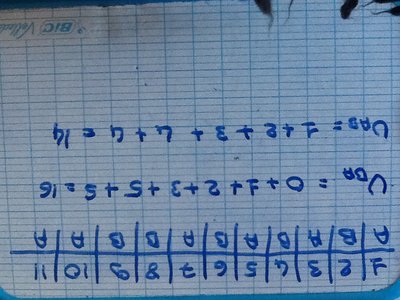 1 | 2 | 3 | 4 | 5 | 6 | 7 | 8 | 9 | 10 | 11
A | B | A | B | A | B | A | B | B | A | A
U_BA = 0+1+2+3+5+5=16
U_AB = 1+2+3+4+4=14
BIC